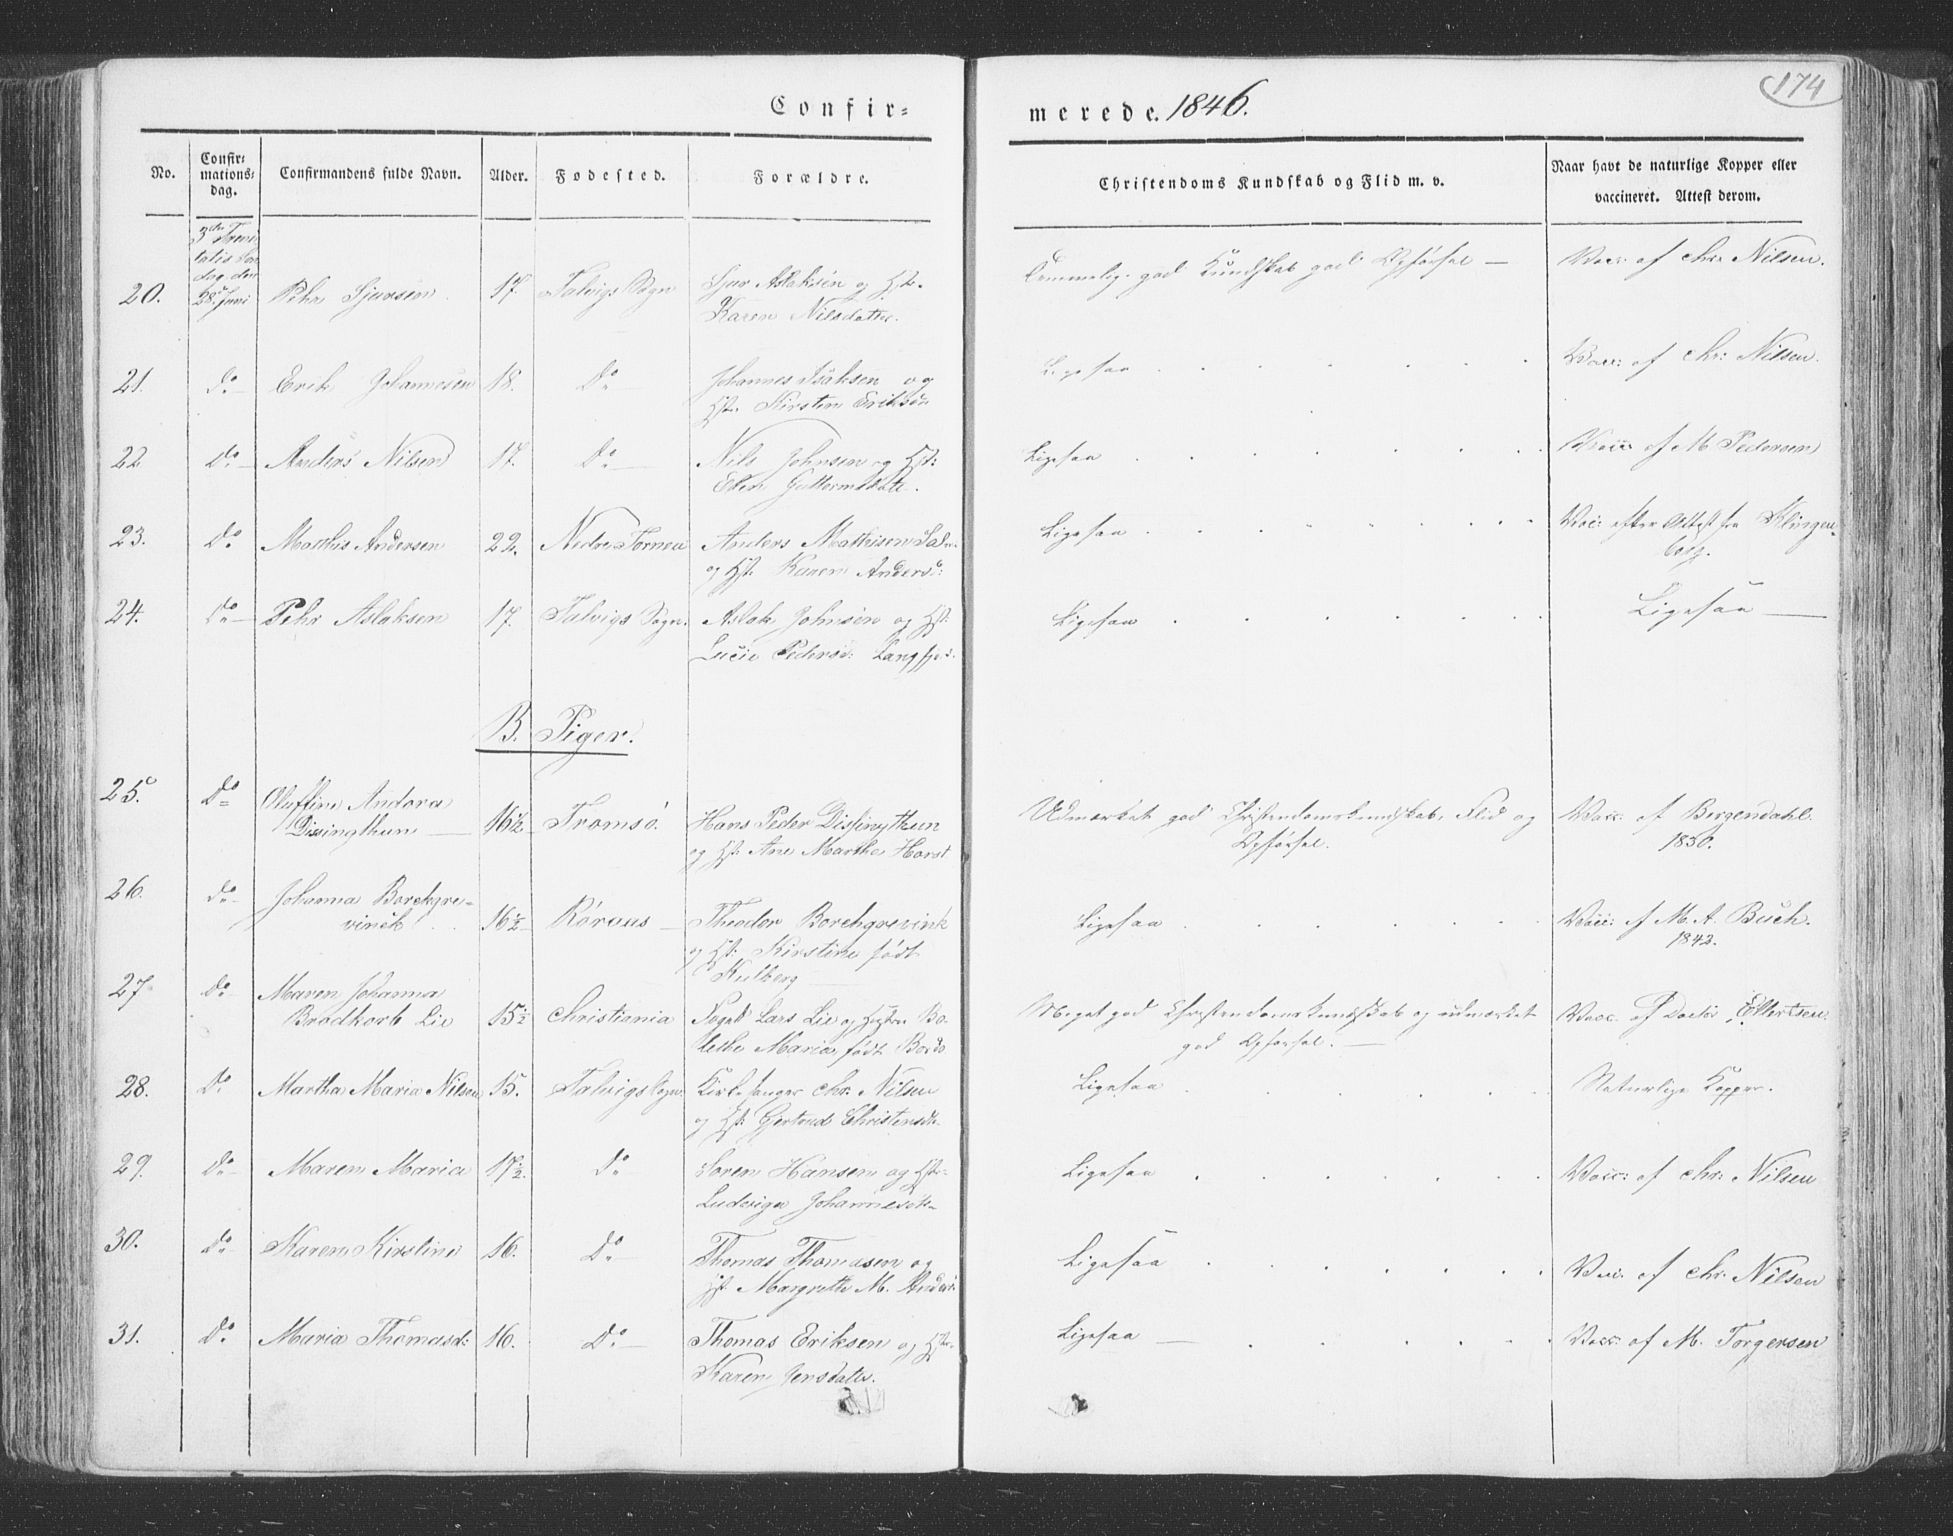 174
Confir=
merede. 1846.
No.
Confir=
mations=
dag.
Confirmandens fulde Navn.
Alder.
Fødested.
Forældre.
Christendoms Kundskab og Flid m. v.
Naar havt de naturlige Kopper eller
vaccineret. Attest derom.
20. 28de Juni Pehr Sjursen 17. Talvigs Sogn Sjur Aslaksen og Hst. Temmelig god Kundskab god Opførsel — Vacc: af Chr. Nilsen.
Karen Nilsdatter.
21. Do Erik Johannesen 18. Do Johannes Isaksen og Ligesaa Vacc: af Chr: Nilsen.
Hst: Kirsten Eriksdr
22 Do Anders Nilsen 17. Do Nils Johnsen og Hst: Ligesaa Vacc af M Pedersen
Ellen Guttormsdatr.
23. Do Mathis Andersen 22. Nedre Tornea Anders Mathisen Ligesaa Vac: efter Attest fra Klingen=
og Hst: Karen Andersd: berg.
24. Do Pehr Aslaksen 17. Talvigs Sogn. Aslak Johnsen og Hst: Ligesaa Ligesaa —
Lucie Pedersd: Langfjord.
B. Piger.
25. Do Oluffine Andora
Dissingthum 16½ Tromsö. Hans Peder Dissingthun Udmærket god Christendomskundskab, Flid og Vacc: af Bergendahl.
og Hst: Ane Martha Horst Opførsel. 1830.
26. Do Johanna Borchgre=
vinck 16½ Röraas Theodor Borchgrevink Ligesaa Vacc: af M. A. Buch.
og Hst: Kirstine født 1842.
Kulberg
27 Do Maren Johanna
Brodkorb Lie 15½ Christiania Foged Lars Lie og Hustru Bo= Meget god Christendomskundskab og udmærket Vacc. af Doctor Ellertsen.
lethe Maria født god Opførsel. —
28. Do Martha Maria Nilsen 15. Talvigs Sogn Kirkesanger Chr: Nilsen Ligesaa Naturlige Kopper.
og Hst: Gertrud Christensdr.
29. Do Maren Maria 17½. Do Søren Hansen og Hst: Ligesaa Vacc: af Chr: Nilsen
Ludviga Johannesdr.
30. Do Karen Kirstine 16. Do Thomas Thomasen og Ligesaa Vac: af Chr: Nilsen
Hst Margrethe M. Andersd:
31. Do Maria Thomasd: 16. Do Thomas Eriksen og Hst: Ligesaa — Vacc: af M. Torgersen
Karen Jensdatr.